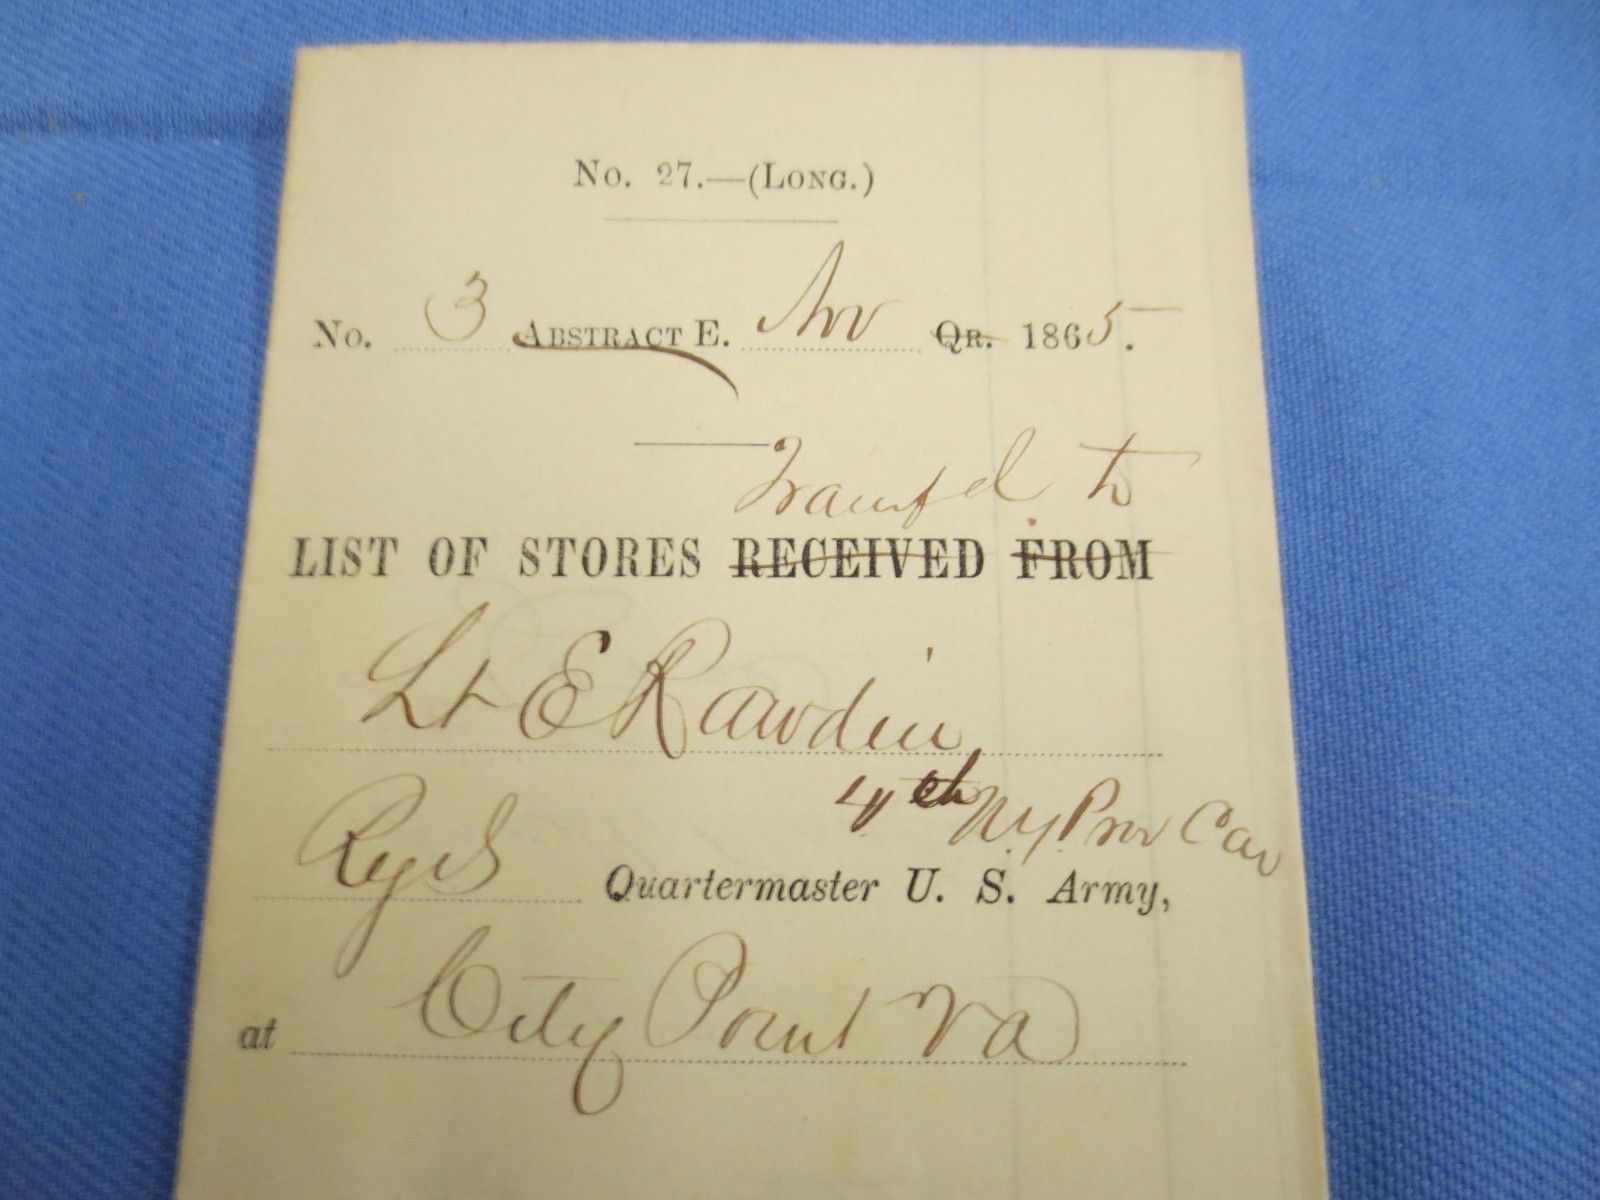 No. 27.—(Long.)
No. 3 Abstract E. Nov Qr. 1865.
Transfd to
LIST OF STORES RECEIVED FROM
Lt E Rawdin,
4th N.Y. Prov Cav
Quartermaster U. S. Army,
at City Point Va